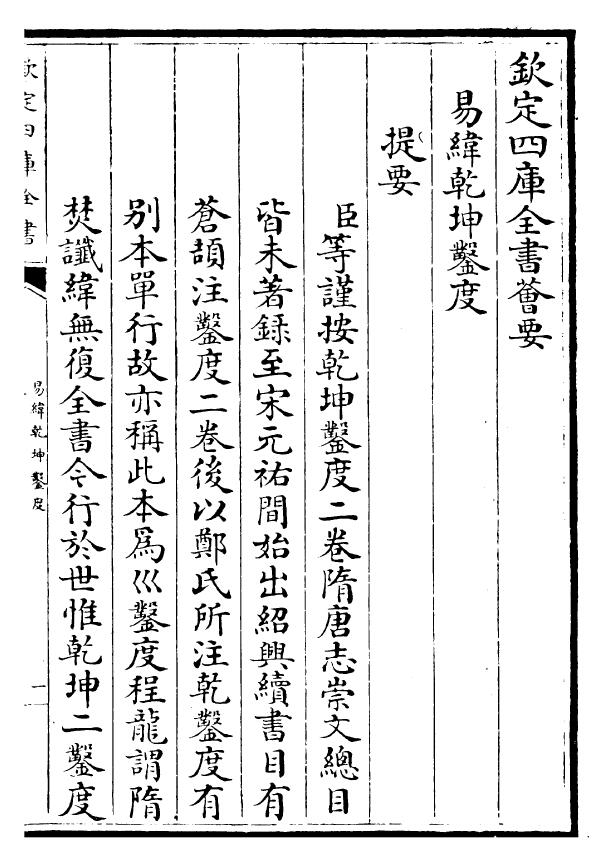 欽定四庫全書薈要
易緯乾坤鑿度
提要
臣等謹按乾坤鑿度二卷隋唐志崇文總目
皆未著録至宋元祐間始出紹興續書目有
蒼頡注鑿度二卷後以鄭氏所注乾鑿度有
别本單行故亦稱此本爲巛鑿度程龍謂隋
焚讖緯無復全書今行於世惟乾坤二鑿度
欽定四庫全書
易緯乾坤鑿度
一